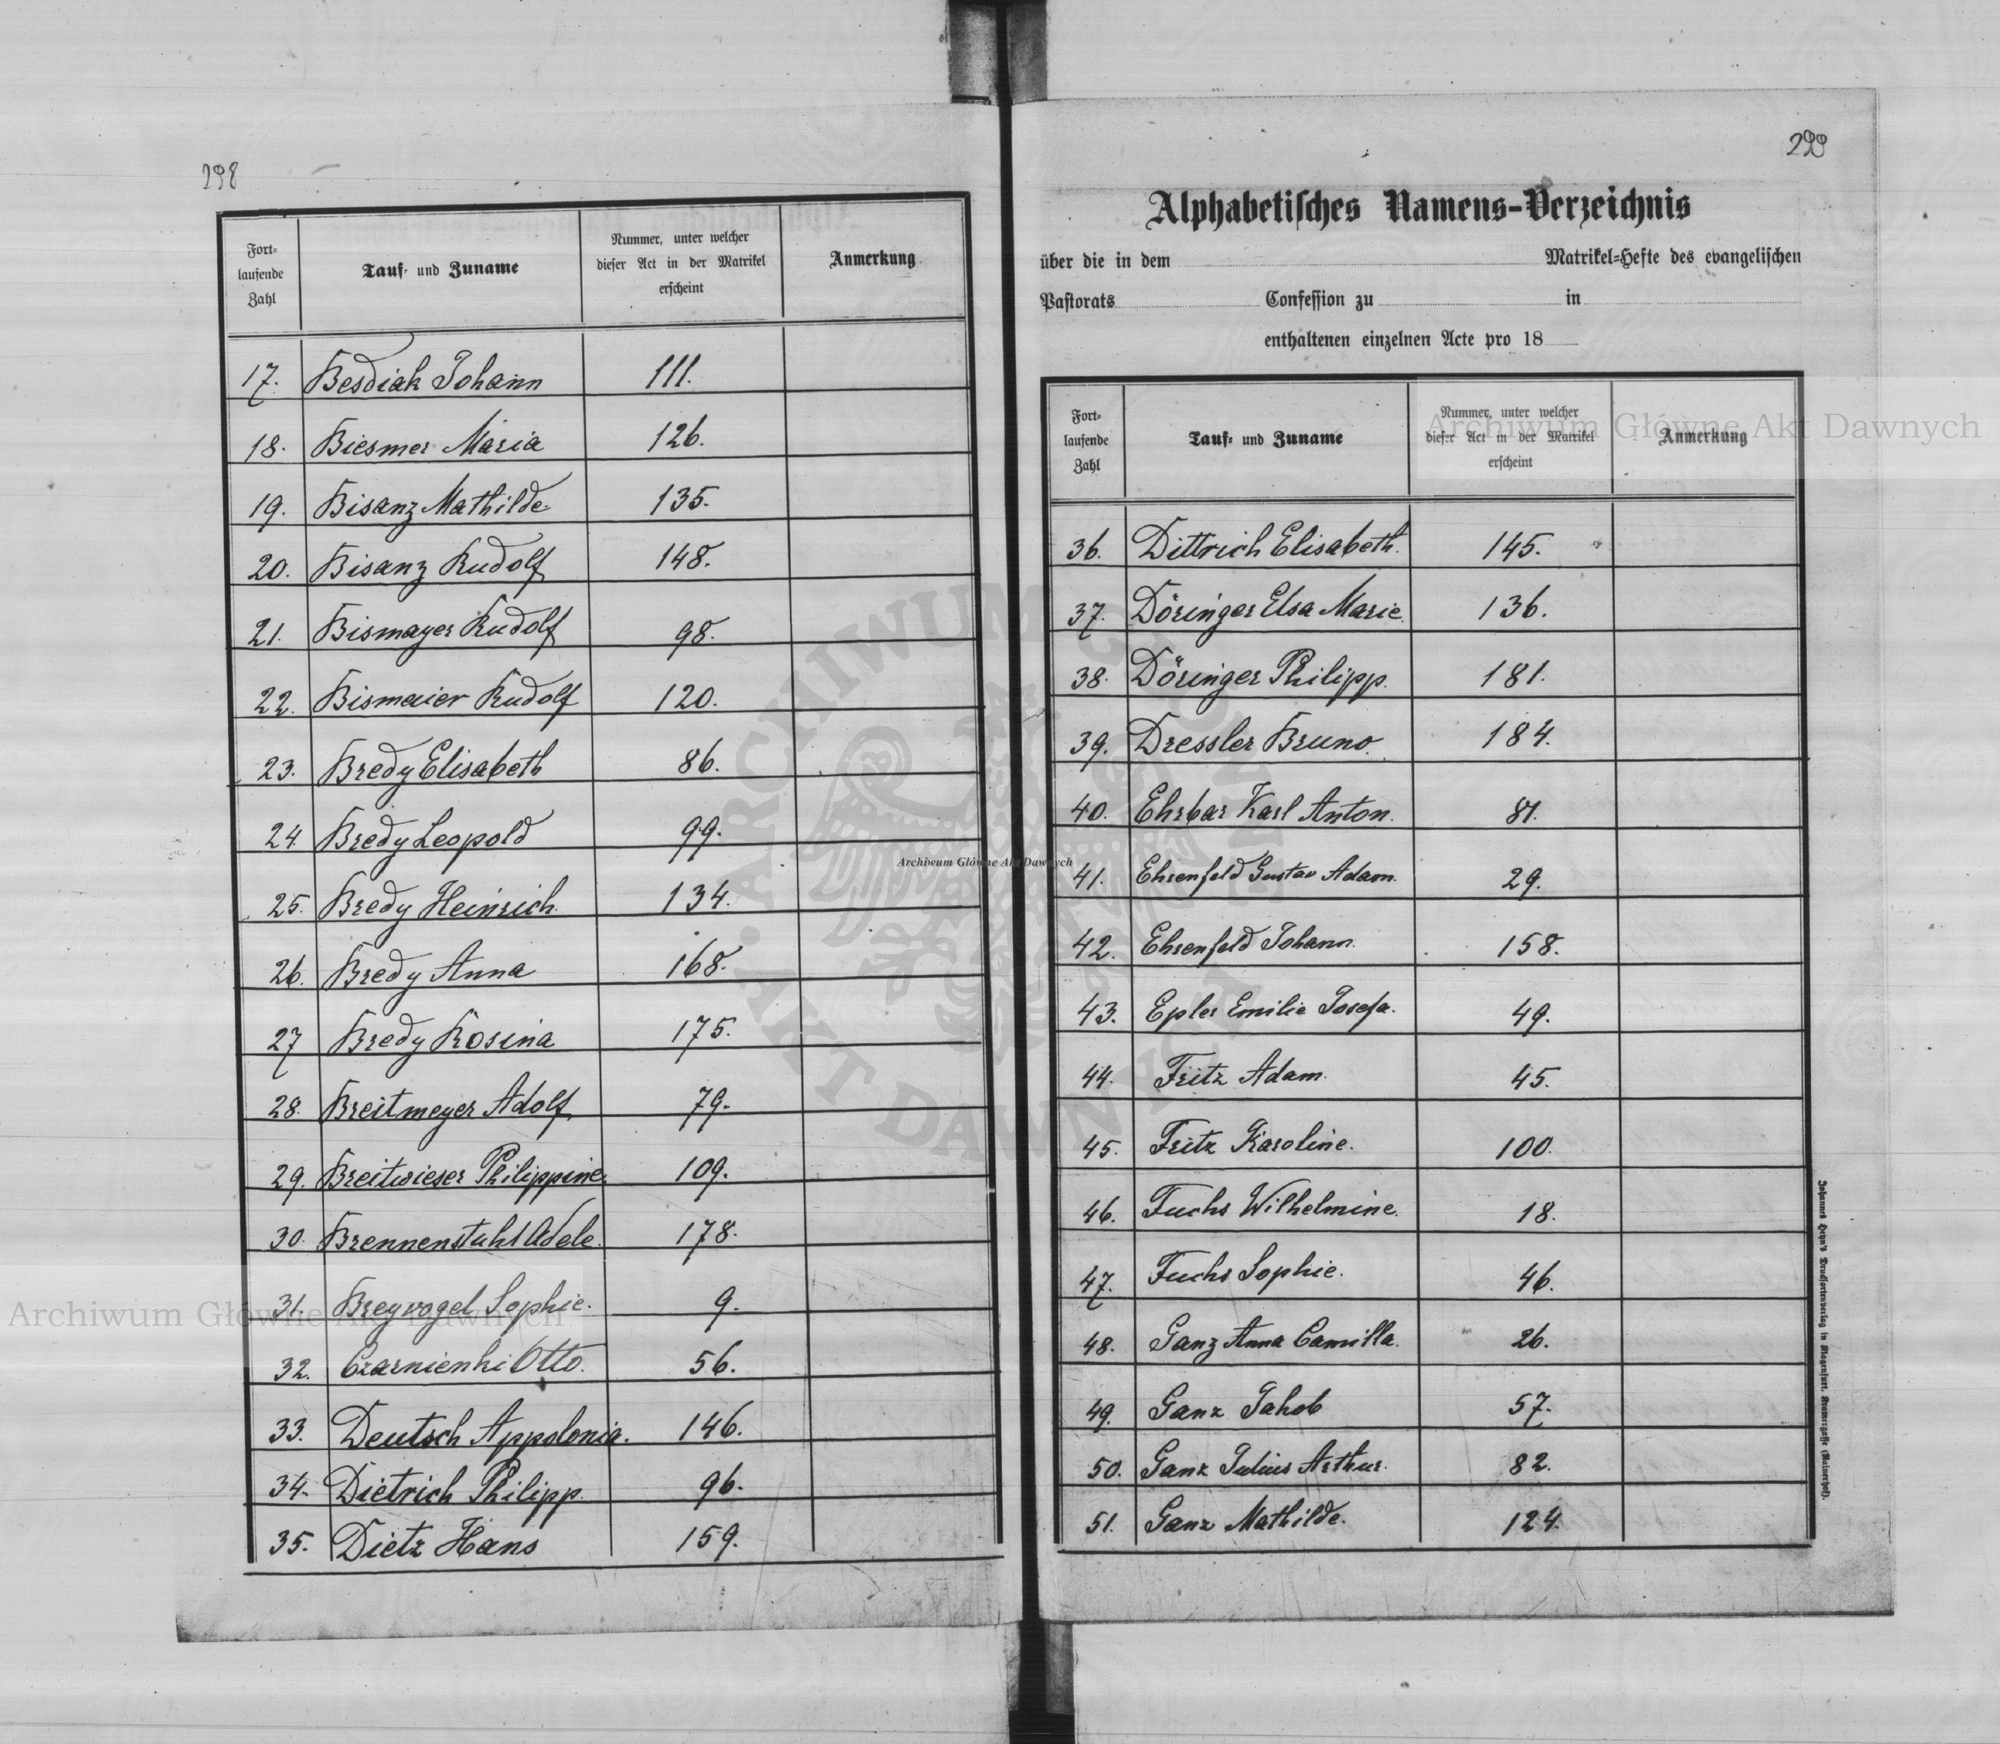 298
Fort-
laufende
Zahl
Tauf- und Zuname
Nummer, unter welcher
dieser Act in der Matrikel
erscheint
Anmerkung
17. Besdiak Johann 111.
18. Biesmer Maria 126.
19. Bisanz Mathilde 135.
20. Bisanz Rudolf 148.
21. Bismayer Rudolf 98.
22. Bismaier Rudolf 120.
23. Bredy Elisabeth 86.
24 Bredy Leopold 99.
25. Bredy Heinrich. 134.
26. Bredy Anna 168.
27 Bredy Rosina 175.
28. Breitmeyer Adolf 79.
29. Breitwieser Philippine. 109.
30. Brennenstuhl Adele. 178.
31. Breyvogel Sophie. 9.
32. Czarnienki Otto. 56.
33. Deutsch Appolonia. 146.
34. Dietrich Philipp. 96.
35. Dietz Hans 159.
299
Alphabetisches Namens-Verzeichnis
über die in dem Matrikel-Hefte des evangelischen
Pastorats Confession zu in
enthaltenen einzelnen Acte pro 18
Fort-
laufende
Zahl
Tauf- und Zuname
Nummer, unter welcher
dieser Act in der Matrikel
erscheint
Anmerkung
36. Dittrich Elisabeth. 145.
37. Döringer Elsa Marie. 136.
38. Döringer Philipp. 181.
39. Dressler Bruno. 184.
40. Ehrbar Karl Anton. 81.
41. Ehrenfeld Gustav Adam. 29.
42. Ehrenfeld Johann. 158.
43. Epler Emilie Josefa. 49.
44. Fritz Adam. 45.
45. Fritz Karoline. 100.
46. Fuchs Wilhelmine. 18.
47. Fuchs Sophie. 46.
48. Ganz Anna Camilla. 26.
49. Ganz Jakob 57.
50. Ganz Julius Arthur. 82.
51. Ganz Mathilde. 124.
Johannes Heyn's Drucksortenverlag in Klagenfurt, Kramergasse (Rainerhof).
Archiwum Główne Akt Dawnych
Archiwum Główne Akt Dawnych
Archiwum Główne Akt Dawnych
ARCHIWUM GŁÓWNE
AKT DAWNYCH